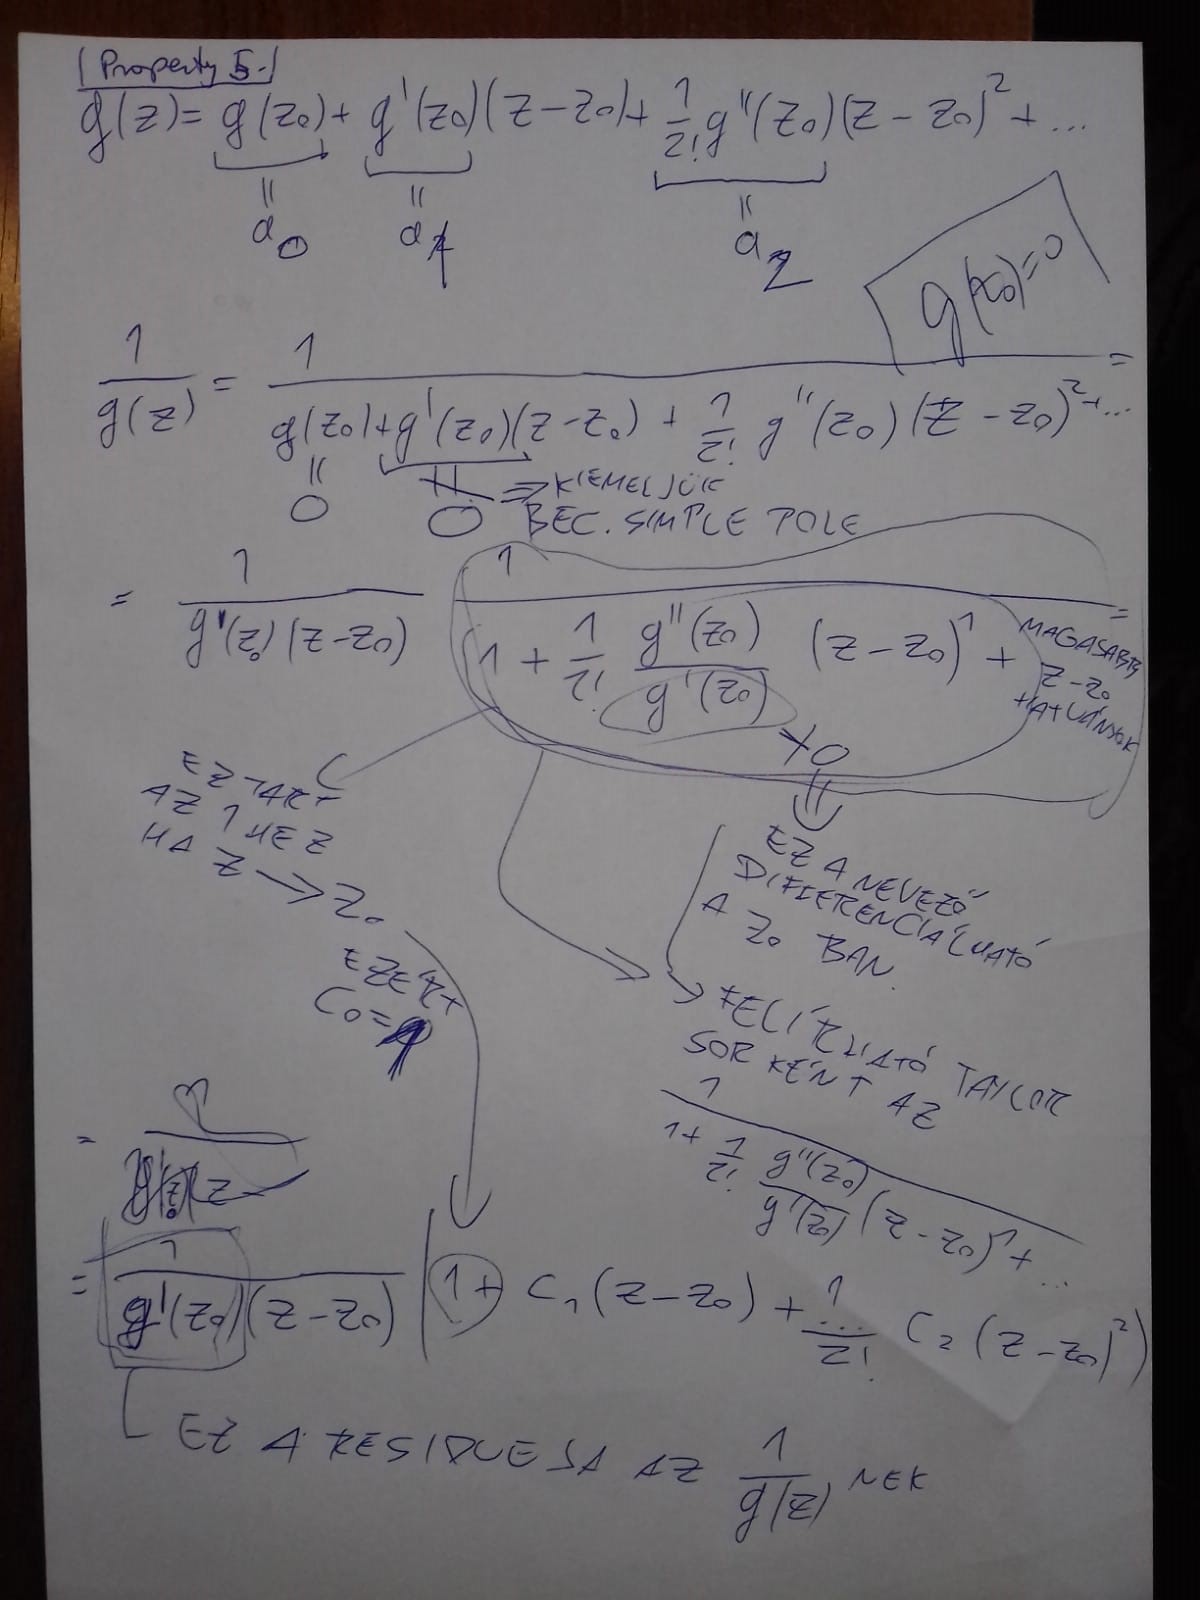 Property 5.
g(z) = g(z₀) + g'(z₀)(z-z₀) + 1/2! g''(z₀)(z-z₀)² + ...
= a₀ = a₁ = a₂
g(z₀)=0
1/g(z) = 1/(g(z₀)+g'(z₀)(z-z₀) + 1/2! g''(z₀)(z-z₀)²+...) =
= 0 ≠ 0 => KIEMELJÜK
BEC. SIMPLE POLE
= 1/(g'(z₀)(z-z₀)) 1/(1 + 1/2! g''(z₀)/g'(z₀) (z-z₀)¹ + MAGASABB z-z₀ HATVÁNYOK) =
≠0
EZ TART
AZ 1 HEZ
HA z → z₀
EZÉRT
C₀=1
EZ A NEVEZŐ
DIFFERENCIÁLHATÓ
A z₀ BAN.
FELÍRHATÓ TAYLOR
SORKÉNT AZ
1/(1+ 1/2! g''(z₀)/g'(z₀) (z-z₀)¹+...)
= 1/(g'(z₀)(z-z₀)) (1+ C₁(z-z₀) + 1.../2! C₂(z-z₀)²)
EZ A RESIDUESA AZ 1/g(z) NEK